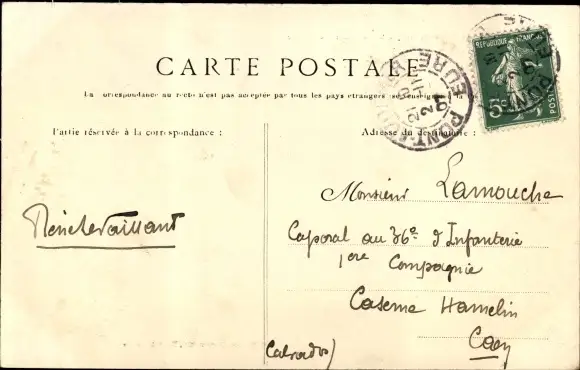 CARTE POSTALE
La correspondance au recto n'est pas acceptée par tous les pays étrangers
Partie réservée à la correspondance :
Adresse du destinataire :
René Levaillant
Monsieur Lamouche
Caporal au 36e d'Infanterie
1ere Compagnie
Caserne Hamelin
Caen
(Calvados)
REPUBLIQUE FRANÇAISE
5c
POSTES
EURE